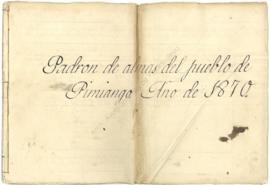 Padron de almas del pueblo de
Pimianga Año de 1870.